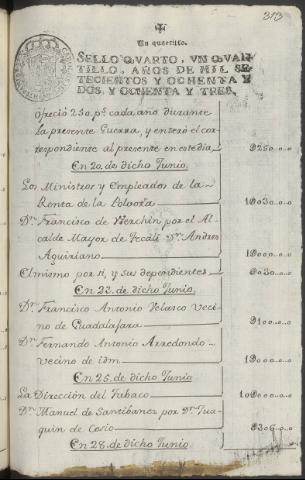 373
Un quartillo.
SELLO QVARTO, VN QVAR-
TILLO, AÑOS DE MIL SE-
TECIENTOS Y OCHENTA Y
DOS, Y OCHENTA Y TRES.
ofreció 250. ps. cada año durante
la presente Guerra, y enteró el cor-
respondiente al presente en este dia
Ɖ250..0..0..
En 20. de dicho Junio.
Los Ministros y Empleados de la
Renta de la Polvora
1Ɖ030..0..0..
Dn. Francisco de Berchin por el Al-
calde Mayor de Tecali Dn. Andres
Aguiriano
1Ɖ000..0..0..
El mismo por si, y sus dependientes
Ɖ030..0..0..
En 23. de dicho Junio.
Dn. Francisco Antonio Velasco Veci-
no de Guadalajara
Ɖ100..0..0..
Dn. Fernando Antonio Arredondo
vecino de idm.
1Ɖ000..0..0..
En 25. de dicho Junio
La Dirección del Tabaco
10Ɖ000..0..0..
Dn. Manuel de Santibañez por Dn. Jua-
quin de Cosio
Ɖ306..0..0..
En 28. de dicho Junio.